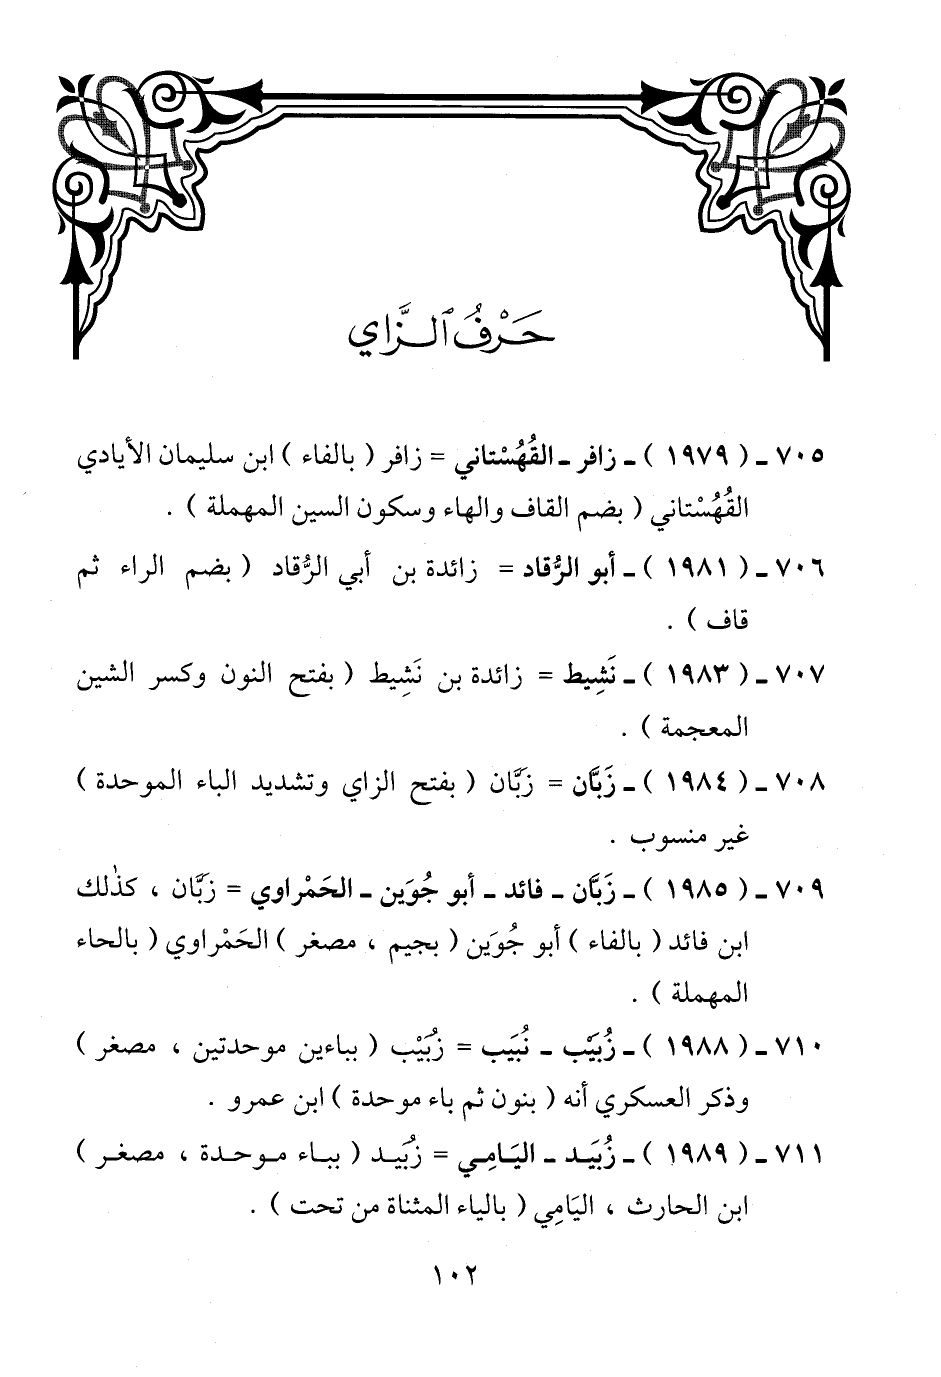 حَرْفُ ٱلزَّاي
٧٠٥ ـ ( ١٩٧٩ ) ـ زافر ـ القُهُسْتاني = زافر ( بالفاء ) ابن سليمان الأيادي
القُهُسْتاني ( بضم القاف والهاء وسكون السين المهملة ) .
٧٠٦ ـ ( ١٩٨١ ) ـ أبو الرُّقاد = زائدة بن أبي الرُّقاد ( بضم الراء ثم
قاف ) .
٧٠٧ ـ ( ١٩٨٣ ) ـ نَشِيط = زائدة بن نَشِيط ( بفتح النون وكسر الشين
المعجمة ) .
٧٠٨ ـ ( ١٩٨٤ ) ـ زَبَّان = زَبَّان ( بفتح الزاي وتشديد الباء الموحدة )
غير منسوب .
٧٠٩ ـ ( ١٩٨٥ ) ـ زَبَّان ـ فائد ـ أبو جُوَين ـ الحَمْراوي = زَبَّان ، كذٰلك
ابن فائد ( بالفاء ) أبو جُوَين ( بجيم ، مصغر ) الحَمْراوي ( بالحاء
المهملة ) .
٧١٠ ـ ( ١٩٨٨ ) ـ زُبَيْب ـ نُبَيب = زُبَيْب ( بباءين موحدتين ، مصغر )
وذكر العسكري أنه ( بنون ثم باء موحدة ) ابن عمرو .
٧١١ ـ ( ١٩٨٩ ) ـ زُبَيـد ـ اليَـامِـي = زُبَيـد ( ببـاء مـوحـدة ، مصغـر )
ابن الحارث ، اليَامِي ( بالياء المثناة من تحت ) .
١٠٢